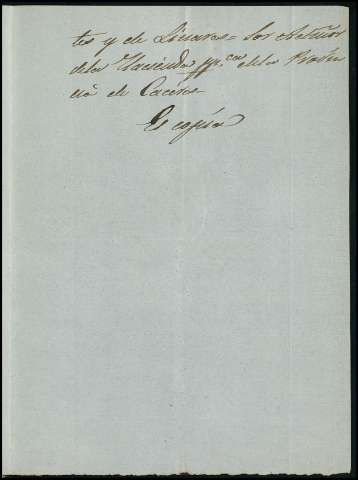 tes y de Linares = Los
de la Hacienda pp.ca de la Provin
cia de Caceres =
Es copia